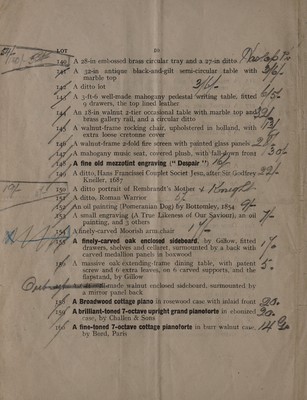 LOT
140 A 28-in embossed brass circular tray and a 27-in ditto
141 A 32-in antique black-and-gilt semi-circular table with
marble top
142 A ditto lot 3/6/-
143 A 3-ft-6 well-made mahogany pedestal writing table, fitted
9 drawers, the top lined leather
144 An 18-in walnut 2-tier occasional table with marble top and
brass gallery rail, and a circular ditto
145 A walnut-frame rocking chair, upholstered in holland, with
extra loose cretonne cover
146 A walnut-frame 2-fold fire screen with painted glass panels
147 A mahogany music seat, covered plush, with fall-down front
148 A fine old mezzotint engraving (" Despair ")
149 A ditto, Hans Francisci Couplet Societ Jesu, after Sir Godfrey
Kneller, 1687
150 A ditto portrait of Rembrandt's Mother & Knight
151 A ditto, Roman Warrior
152 An oil painting (Pomeranian Dog) by Bottomley, 1854
153 A small engraving (A True Likeness of Our Saviour), an oil
painting, and 3 others
154 A finely-carved Moorish arm-chair
155 A finely-carved oak enclosed sideboard, by Gillow, fitted
drawers, shelves and cellaret, surmounted by a back with
carved medallion panels in boxwood
156 A massive oak-extending-frame dining table, with patent
screw and 6 extra leaves, on 6 carved supports, and the
flapstand, by Gillow
-made walnut enclosed sideboard, surmounted by
a mirror panel back
158 A Broadwood cottage piano in rosewood case with inlaid front
159 A brilliant-toned 7-octave upright grand pianoforte in ebonized
case, by Challen & Sons
160 A fine-toned 7-octave cottage pianoforte in burr walnut case,
by Bord, Paris